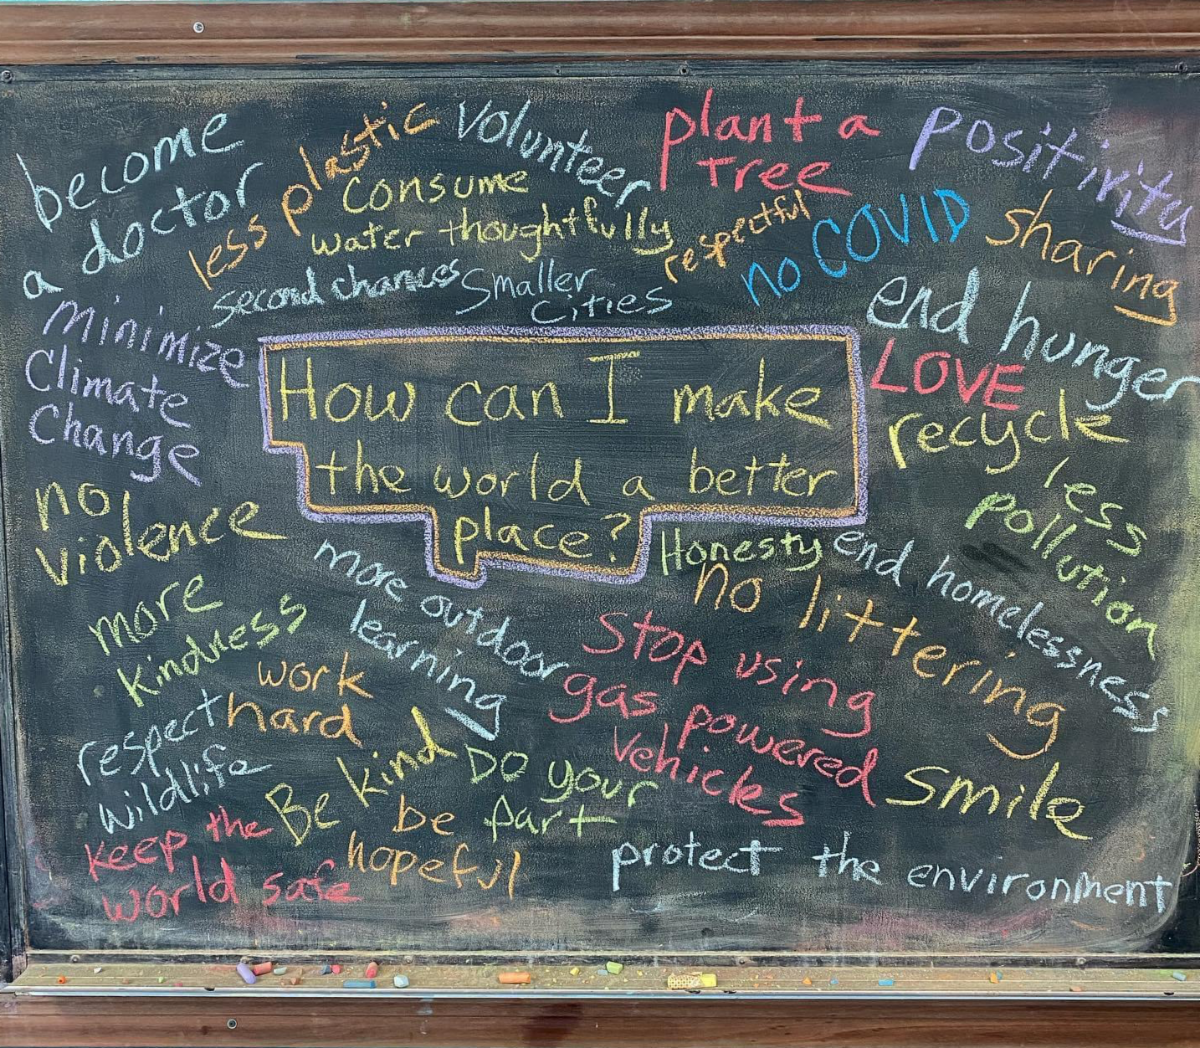 become
a doctor
less plastic
Volunteer
plant a
tree
positivity
consume
water thoughtfully
respectful
no COVID
sharing
second chances
smaller
cities
end hunger
minimize
Climate
Change
How can I make
the world a better
place?
LOVE
recycle
less
pollution
no
violence
Honesty
end homelessness
more outdoor
learning
no littering
more
kindness
Stop using
gas powered
vehicles
work
hard
respect
wildlife
Be kind
Do your
part
smile
be
hopeful
keep the
world safe
protect the environment